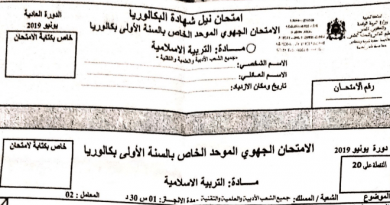 امتحان نيل شهادة البكالوريا
الدورة العادية
يونيو 2019
الامتحان الجهوي الموحد الخاص بالسنة الأولى بكالوريا
خاص بكتابة الامتحان
مادة: التربية الاسلامية
-جميع الشعب الأدبية والعلمية والتقنية-
الاسم الشخصي:
الاسم العائلي:
تاريخ ومكان الازدياد:
رقم الامتحان
خاص بكتابة الامتحان
الامتحان الجهوي الموحد الخاص بالسنة الأولى بكالوريا
دورة يونيو 2019
مادة: التربية الاسلامية
النقطة على 20
الموضوع
الشعبة / المسلك: جميع الشعب الأدبية والعلمية والتقنية
مدة الإنجاز: 01 س 30 د
المعامل: 02